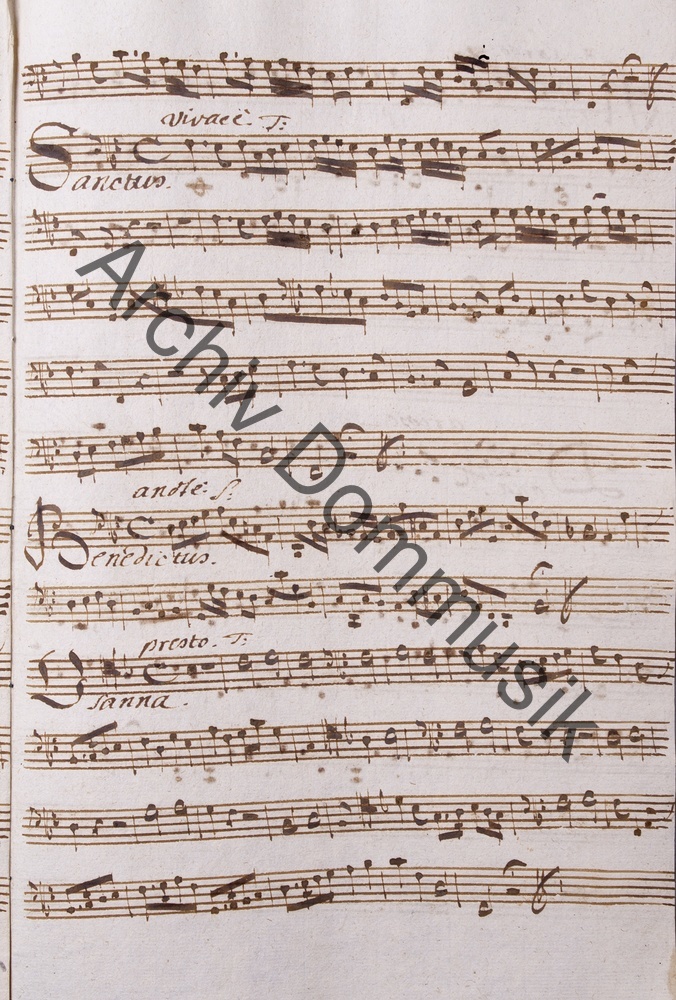 vivacè. T:
Sanctus.
andte: S:
Benedictus.
presto. T:
Osanna.
Archiv Dommusik